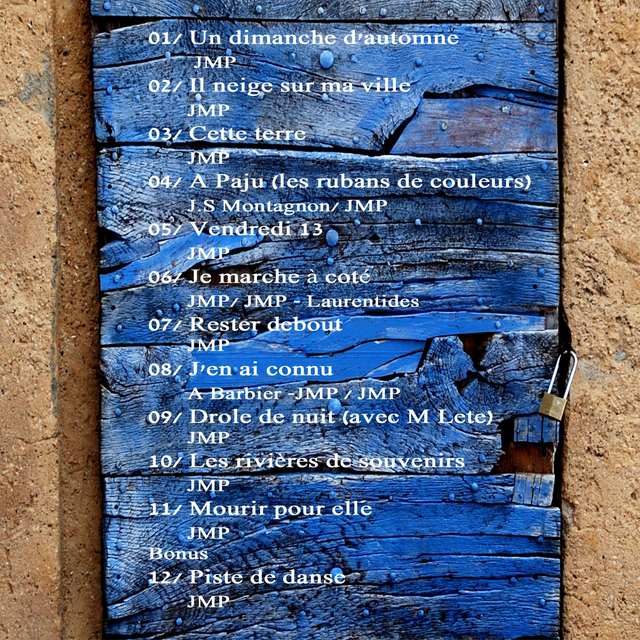 01/ Un dimanche d'automne
JMP
02/ Il neige sur ma ville
JMP
03/ Cette terre
JMP
04/ A Paju (les rubans de couleurs)
J.S Montagnon/ JMP
05/ Vendredi 13
JMP
06/ Je marche à coté
JMP/ JMP - Laurentides
07/ Rester debout
JMP
08/ J'en ai connu
A Barbier -JMP / JMP
09/ Drole de nuit (avec M Lete)
JMP
10/ Les rivières de souvenirs
JMP
11/ Mourir pour elle
JMP
Bonus
12/ Piste de danse
JMP